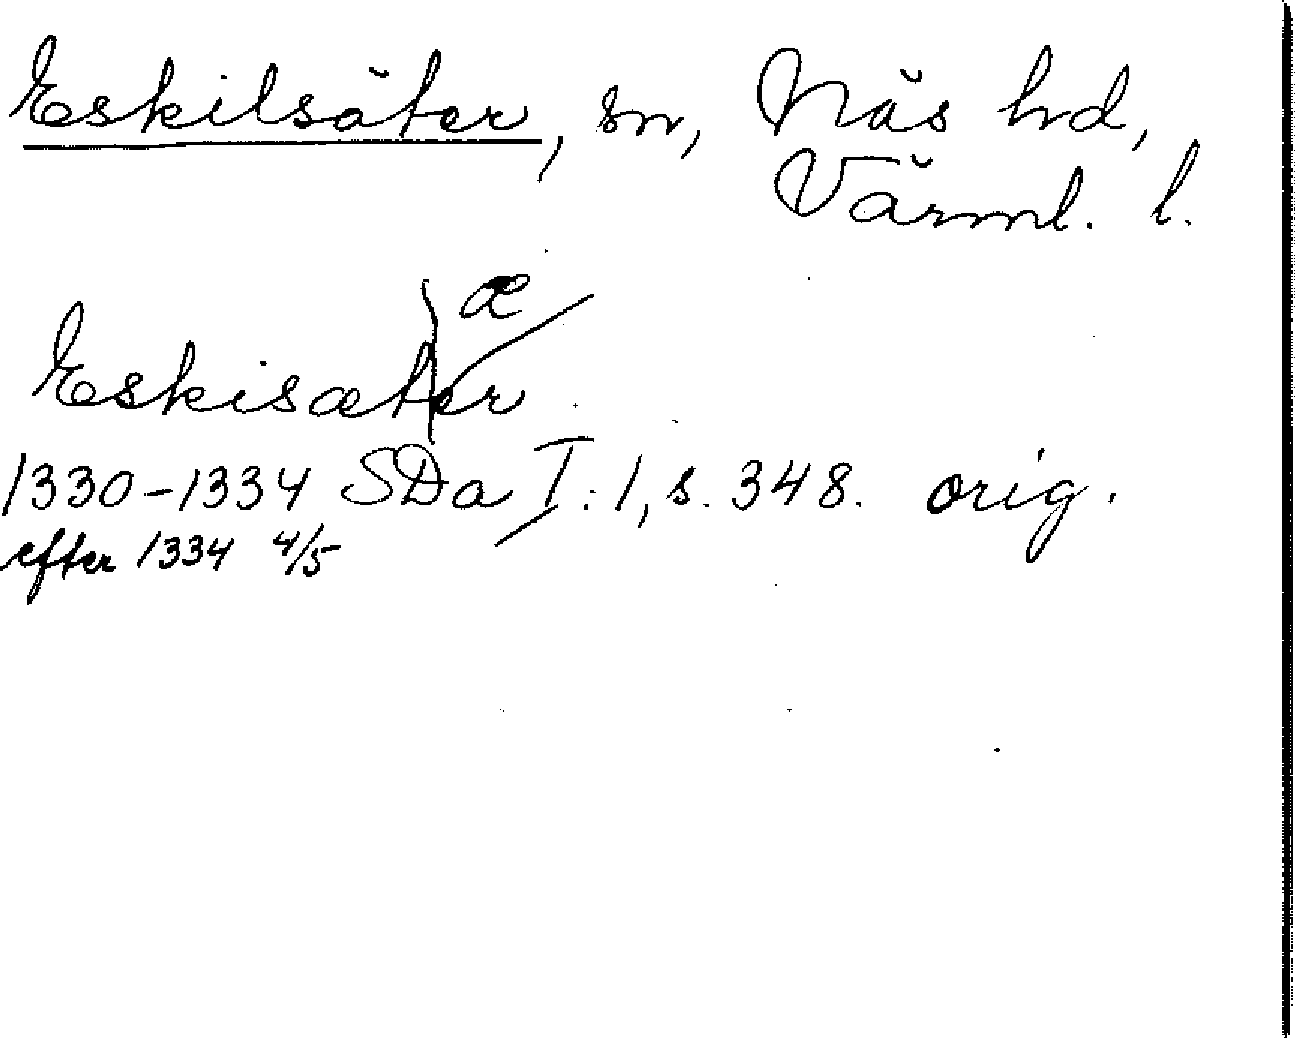 Eskilsäter, sn, Näs hd,
Värml. l.
æ
Eskisæter
1330-1334 SDa I:1, s. 348. orig.
efter 1334 4/5